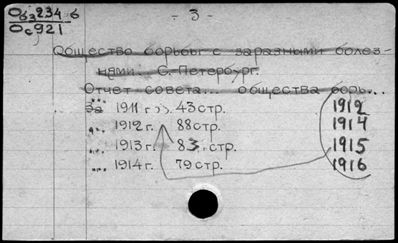 Об 234 б
Ос 921
- 3 -
Общество борьбы с заразными болез-
нями. С.-Петербург.
Отчет совета... общества борь...
За 1911 г. 43 стр. 1912
... 1912 г. 88 стр. 1914
... 1913 г. 83 стр. 1915
... 1914 г. 79 стр. 1916